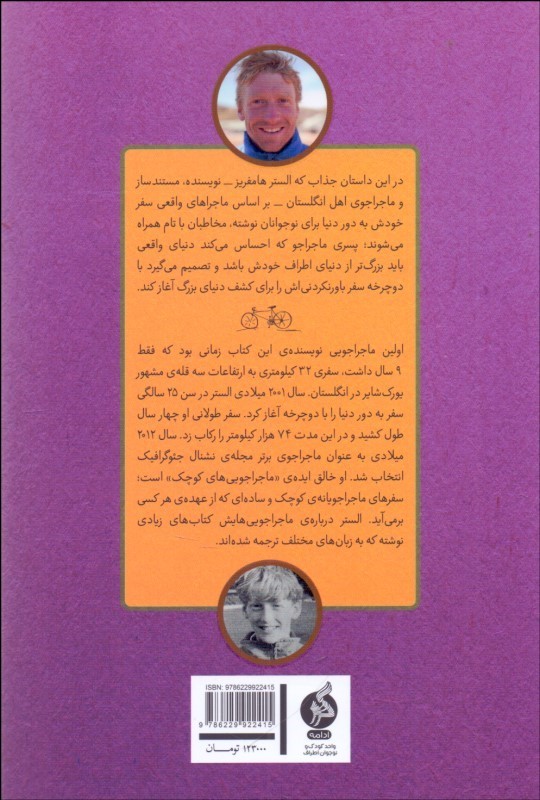 در این داستان جذاب که الستر هامفریز ــ نویسنده، مستندساز
و ماجراجوی اهل انگلستان ــ بر اساس ماجراهای واقعی سفر
خودش به دور دنیا برای نوجوانان نوشته، مخاطبان با تام همراه
می‌شوند؛ پسری ماجراجو که احساس می‌کند دنیای واقعی
باید بزرگ‌تر از دنیای اطراف خودش باشد و تصمیم می‌گیرد با
دوچرخه سفر باورنکردنی‌اش را برای کشف دنیای بزرگ آغاز کند.
اولین ماجراجویی نویسنده‌ی این کتاب زمانی بود که فقط
۹ سال داشت، سفری ۳۲ کیلومتری به ارتفاعات سه قله‌ی مشهور
یورک‌شایر در انگلستان. سال ۲۰۰۱ میلادی الستر در سن ۲۵ سالگی
سفر به دور دنیا را با دوچرخه آغاز کرد. سفر طولانی او چهار سال
طول کشید و در این مدت ۷۴ هزار کیلومتر را رکاب زد. سال ۲۰۱۲
میلادی به عنوان ماجراجوی برتر مجله‌ی نشنال جئوگرافیک
انتخاب شد. او خالق ایده‌ی «ماجراجویی‌های کوچک» است؛
سفرهای ماجراجویانه‌ی کوچک و ساده‌ای که از عهده‌ی هر کسی
برمی‌آید. الستر درباره‌ی ماجراجویی‌هایش کتاب‌های زیادی
نوشته که به زبان‌های مختلف ترجمه شده‌اند.
ISBN: 9786229922415
9 786229 922415
۱۲۳۰۰۰ تومـــان
ادامه
واحد کودک و
نوجوان اطراف